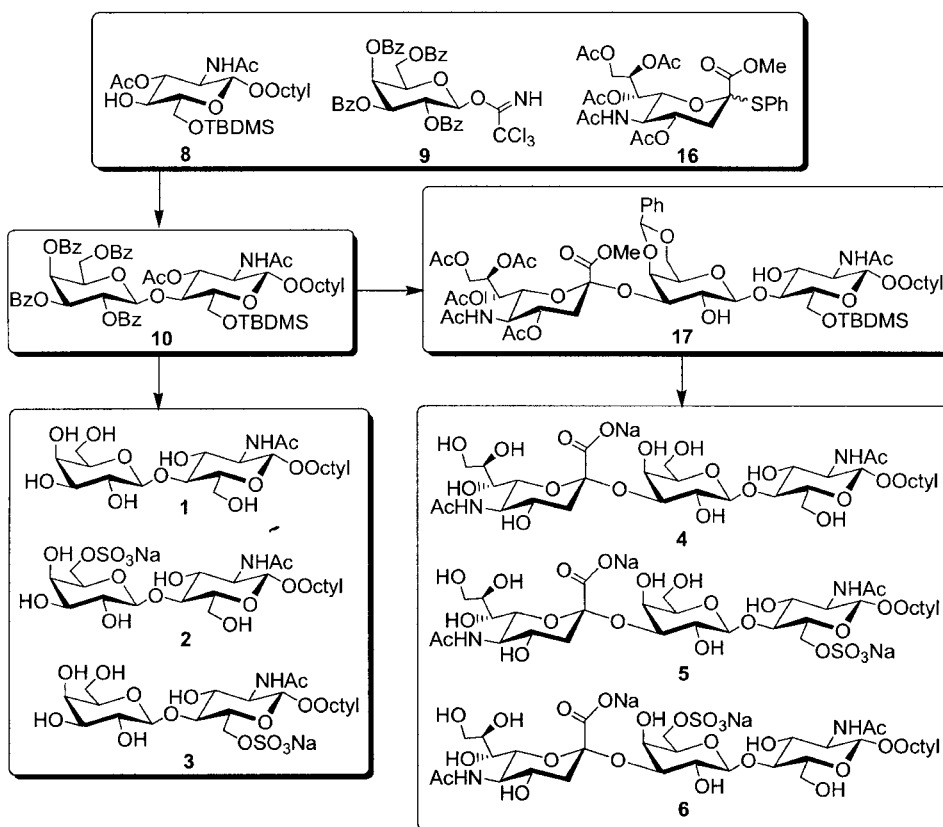 AcO NHAc
HO O OOctyl
OTBDMS
8
OBz OBz
O
BzO O NH
OBz CCl3
9
AcO OAc O OMe
AcO O SPh
AcHN
AcO
16
OBz OBz
O AcO NHAc
BzO O O OOctyl
OBz OTBDMS
10
Ph
O O
AcO OAc O OMe O HO NHAc
AcO O O O O OOctyl
AcHN OH OTBDMS
AcO
17
OH OH
O HO NHAc
HO O O OOctyl
OH OH
1
OH OSO3Na
O HO NHAc
HO O O OOctyl
OH OH
2
OH OH
O HO NHAc
HO O O OOctyl
OH OSO3Na
3
HO OH O ONa OH OH
HO O O O HO NHAc
AcHN O O OOctyl
HO OH OH
4
HO OH O ONa OH OH
HO O O O HO NHAc
AcHN O O OOctyl
HO OH OSO3Na
5
HO OH O ONa OH OSO3Na
HO O O O HO NHAc
AcHN O O OOctyl
HO OH OH
6